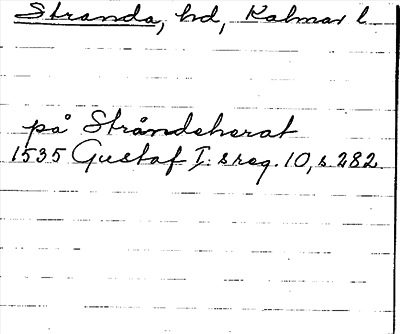 Stranda, hd, Kalmar l.
på Stråndeherat
1535 Gustaf I:s reg. 10, s 282